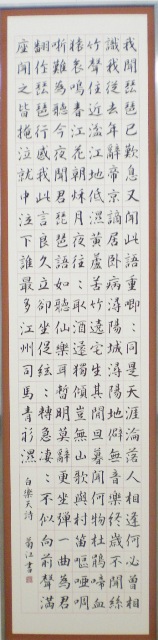 我聞琵琶已歎息又聞此語重唧〻同是天涯淪落人相逢何必曾相
識我從去年辭帝京謫居臥病潯陽城潯陽地僻無音樂終歲不聞絲
竹聲住近湓江地低濕黃蘆苦竹遶宅生其間旦暮聞何物杜鵑啼血
猿哀鳴春江花朝秌月夜往〻取酒還獨傾豈無山歌與村笛嘔啞啁
哳難為聽今夜聞君琵琶語如聽仙樂耳暫明莫辭更坐彈一曲為君
翻作琵琶行感我此言良久立卻坐促絃〻轉急淒〻不似向前聲滿
座聞之皆掩泣就中泣下誰最多江州司馬青衫濕
白樂天詩 菊江書